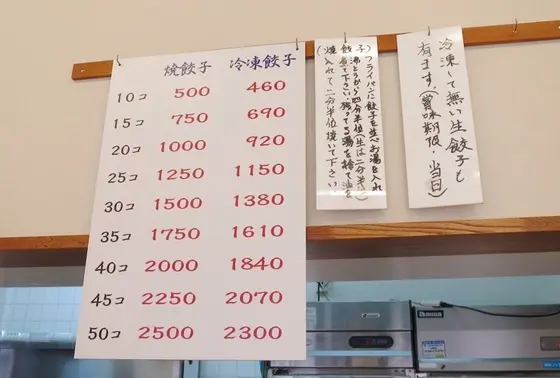 焼餃子 冷凍餃子
10コ 500 460
15コ 750 690
20コ 1000 920
25コ 1250 1150
30コ 1500 1380
35コ 1750 1610
40コ 2000 1840
45コ 2250 2070
50コ 2500 2300
フライパンに餃子を並べお湯を入れ
沸とうから四分半位(生は二分半)
餃煮て下さい残ってる湯を捨て油を
(焼入れて、二分半位焼いて下さい
子)
冷凍して無い生餃子も
有ます。(賞味期限・当日)